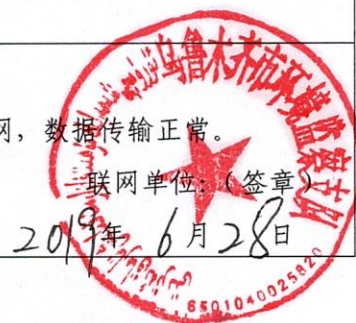 网，数据传输正常。
联网单位：（签章）
2019年 6月28日
乌鲁木齐市环境监察支队
6501040025820